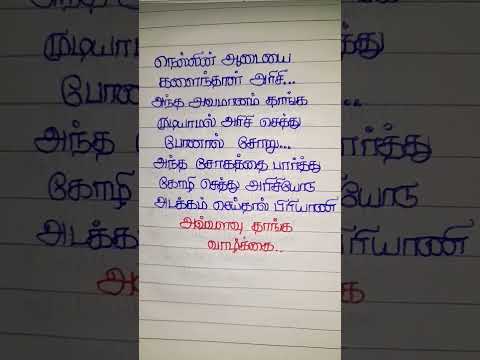 நெல்லின் ஆடையை
களைந்தான் அரிசி...
அந்த அவமானம் தாங்க
முடியாமல் அரிசி செத்து
போனால் சோறு...
அந்த சோகத்தை பார்த்து
கோழி செத்து அரிசியோடு
அடக்கம் செய்தால் பிரியாணி
அவ்வளவு தாங்க
வாழ்க்கை..